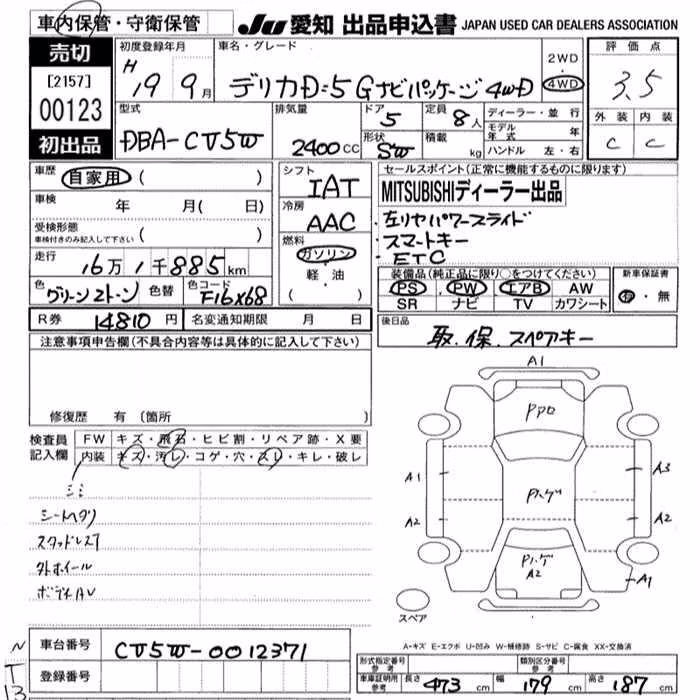 車内保管・守衛保管
JU 愛知 出品申込書 JAPAN USED CAR DEALERS ASSOCIATION
売切
[2157]
00123
初出品
初度登録年月
H 19 9月
車名・グレード
デリカD:5 Gナビパッケージ 4WD
2WD
4WD
評価点
3.5
外装 内装
C C
型式
DBA-CV5W
排気量
2400cc
ドア 5
形状 SW
定員 8人
積載 kg
ディーラー・並行
モデル年式 年
ハンドル 左・右
車歴 自家用 ( )
車検 年 月( 日)
受検形態
車検付きのみ記入して下さい ( )
走行 16万1千885km
色 グリーン2トーン 色替 色コード F16X68
R券 14810円 名変通知期限 月 日
シフト
IAT
冷房
AAC
燃料
ガソリン
軽・油
( )
セールスポイント(正常に機能するものに限ります)
MITSUBISHIディーラー出品
左リヤパワースライド
スマートキー
ETC
装備品(純正品に限り○をつけてください)
PS PW エアB AW
SR ナビ TV カワシート
新車保証書
有・無
後日品
取.保.スペアキー
注意事項申告欄(不具合内容等は具体的に記入して下さい)
修復歴 有 (箇所 )
検査員記入欄
FW キズ・飛石・ヒビ割・リペア跡・X要
内装 キズ・汚レ・コゲ・穴・スレ・キレ・破レ
シミ
シートヘタリ
スタッドレス
外ホイール
ボディAV
A1
A1
A2
A3
A2
A2
A1
スペア
A-キズ E-エクボ U-凹み W-補修跡 S-サビ C-腐食 XX-交換済
車台番号 CV5W-0012371
登録番号
N
T
B
形式指定番号 参考
類別区分番号 参考
車庫証明用 参考 長さ 473cm 幅 179cm 高さ 187cm